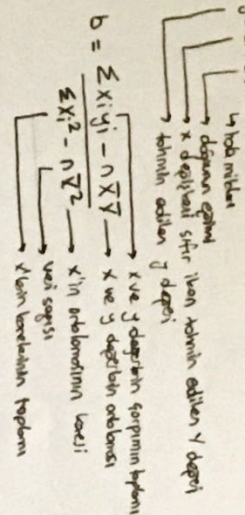 hata miktarı
doğrunun eğimi
x değişkeni sıfır iken tahmin edilen y değeri
tahmin edilen y değeri
b = Σxiyi - nx̄ȳ / Σxi² - nx̄²
x ve y değerinin çarpımın toplamı
x ve y değerinin ortalaması
x'in ortalamasının karesi
veri sayısı
x'lerin karelerinin toplamı